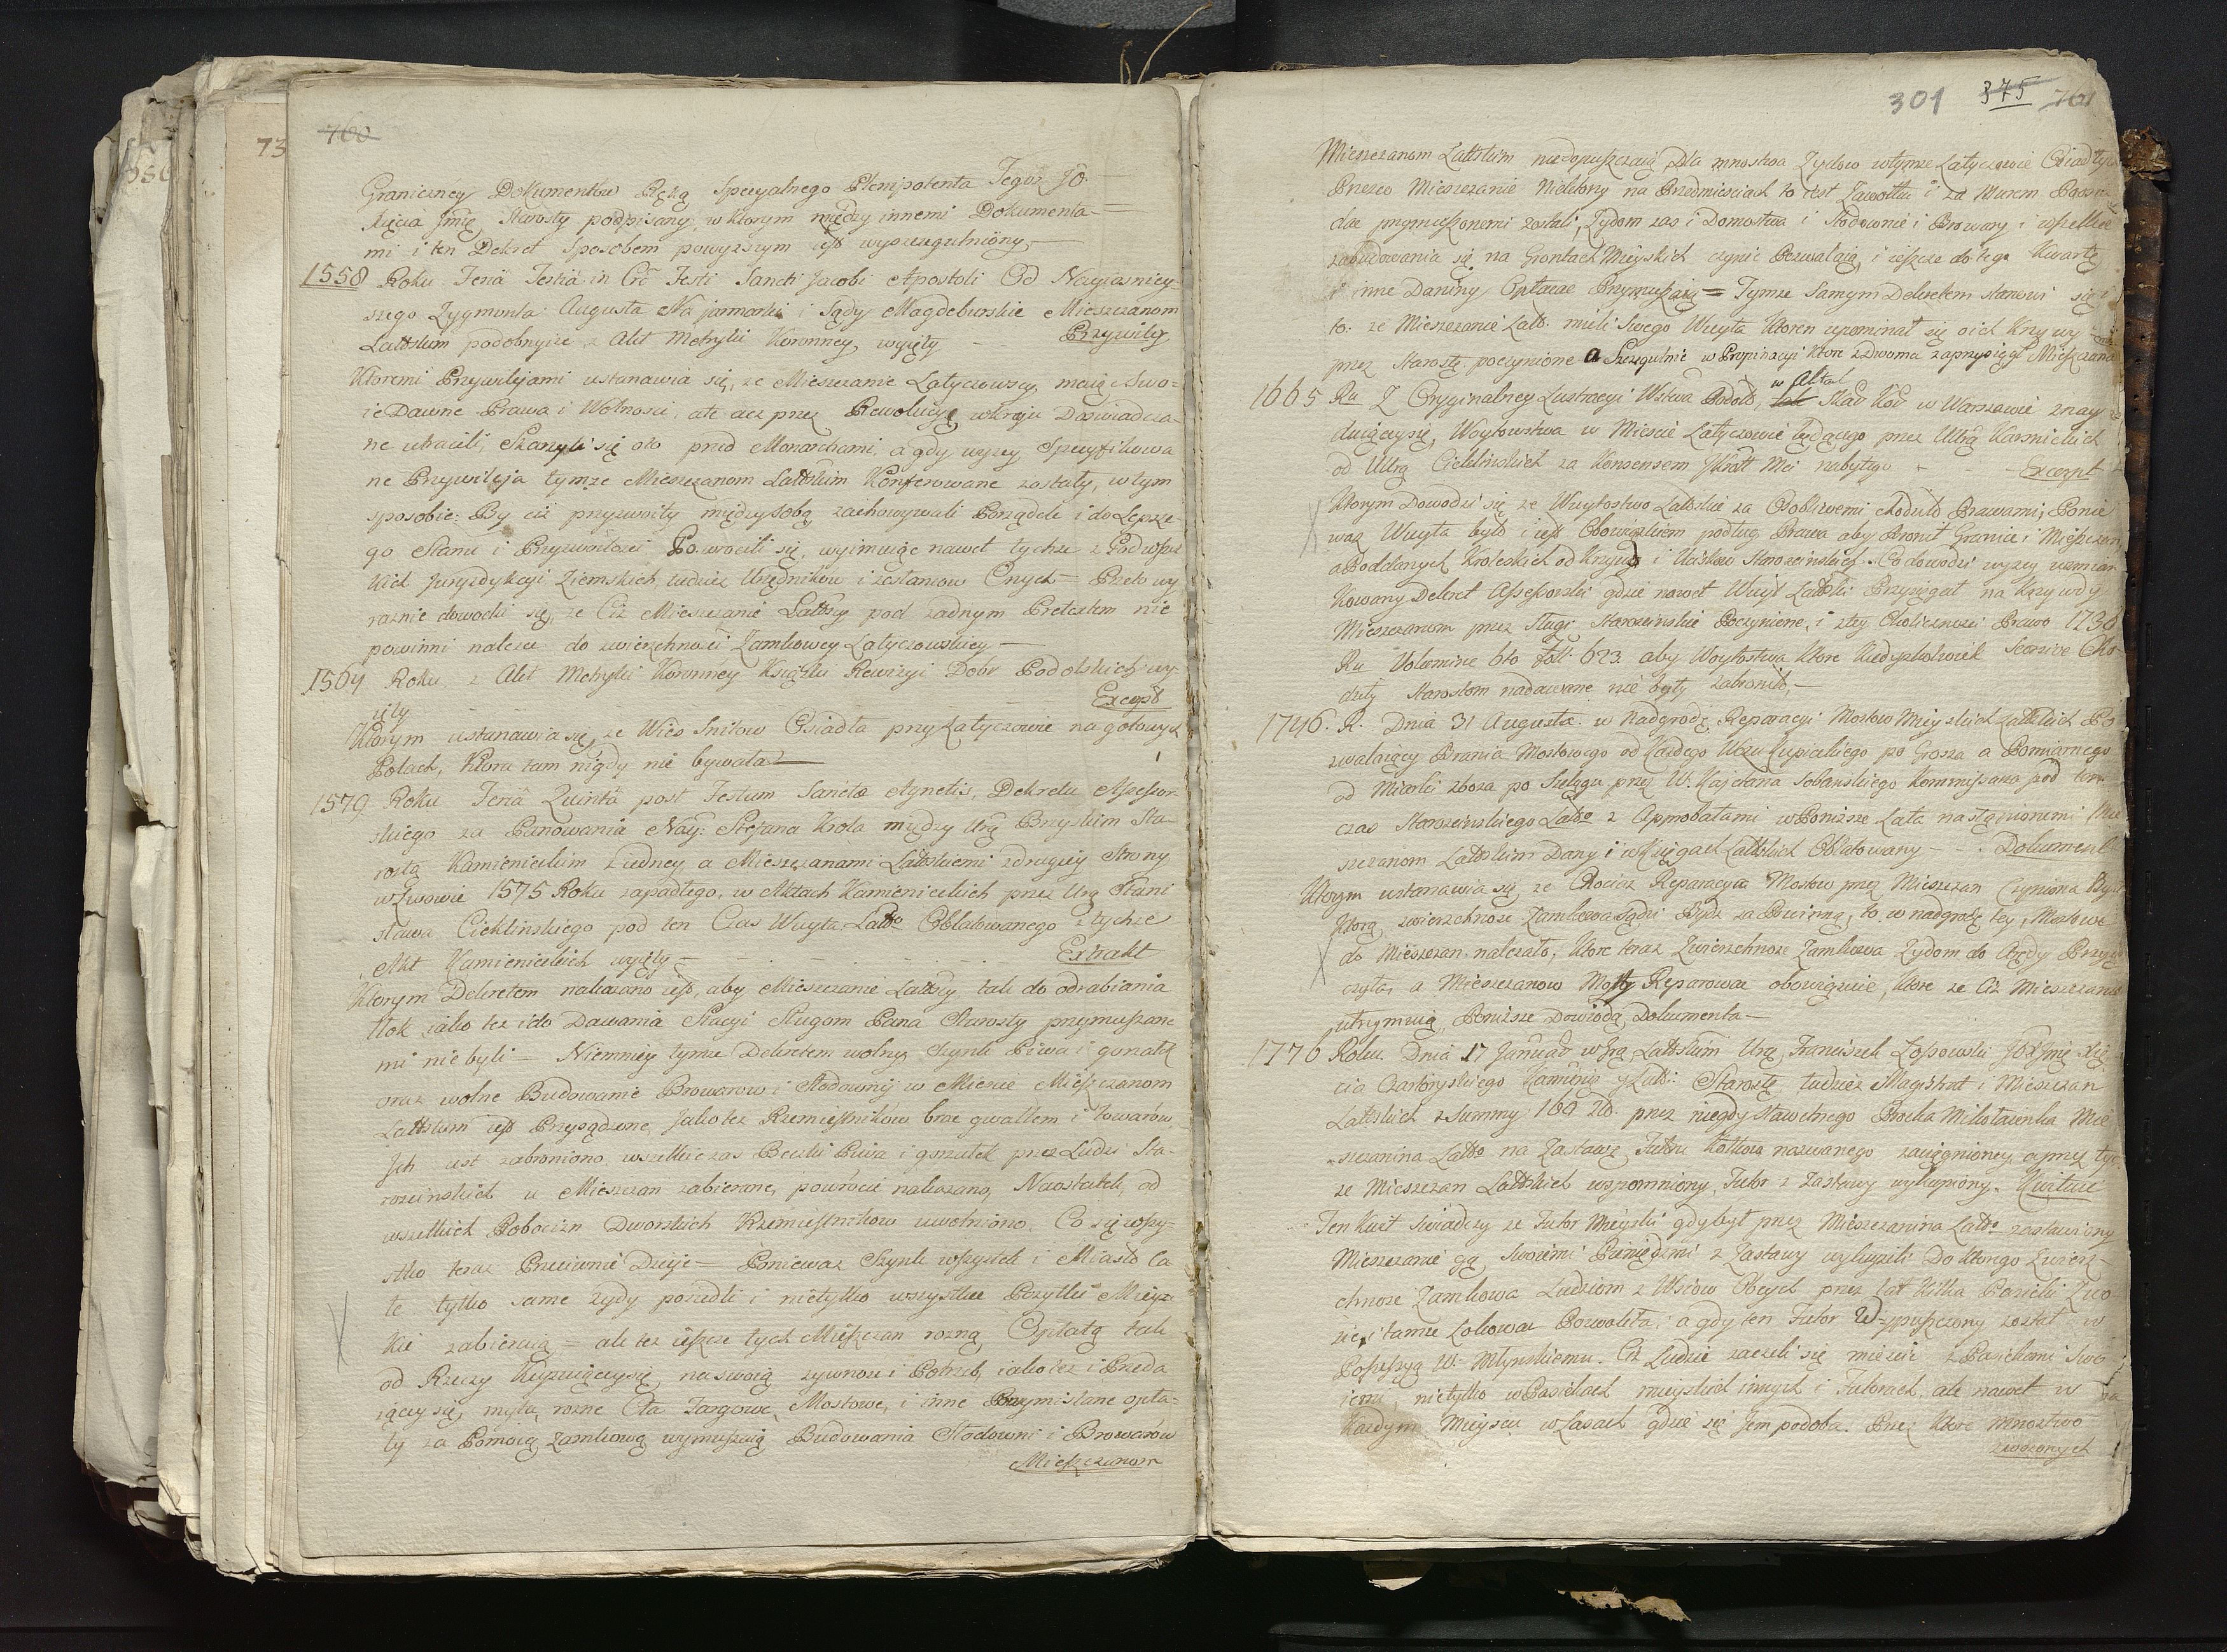 760
73
Graniczney Dokumentow Ręką Specyalnego Plenipotenta Tegoż JO.
Xięcia Jmię Starosty podpisany, w ktorym między innemi Dokumenta-
mi i ten Dekret Sposobem powyższym jest wyszczegulniony,
1558 Roku Feria Tertia in Crō Festi Sancti Jacobi Apostoli Od Nayiasniey-
szego Zygmunta Augusta Na jarmarki i Sądy Magdeburskie Mieszczanom
Lattskim podobnyże z Akt Metryki Koronney wyięty - - Przywiley
Ktoremi Przywilejami ustanawia się, ze Mieszczanie Latyczowscy, maią Swo-
ie Dawne Prawa i Wolnosci, ale acz przez Rewolucyę w kraju Doswiadcza-
ne utracili, Skarzyli się oto przed Monarchami, a gdy wyzey Specyfikowa
ne Przywileja tymze Mieszczanom Lattskim Konferowane zostały, w tym
sposobie: By ciż przyzwoity między sobą zachowywali Porządek i do Lepsze-
go Stanu i Przyzwoitosci Powrocili się, wyimuiąc nawet tychze z Pod wszel
kich Juryzdykcyi Ziemskich, tudziez Urzędnikow i zostaniow Onych = Przeto wy
raznie dowodzi się, ze Ciż Mieszczanie Lattscy pod zadnym Pretextem nie
powinni nalezec do zwierzchnosci Zamkowey Latyczowskiey —
1564 Roku z Akt Metryki Koronney Ksiązki Rewizyi Dobr Podolskich wy-
ięty - - - - Except
Ktorym ustanawia się, ze Wies Snitow Osiadła przy Latyczowie na gotowych
Polach, Ktora tam nigdy nie bywała —
1579 Roku Feria Quinta post Festum Sanctæ Agnetis, Dekretu Assessor
skiego za Panowania Nay: Stefana Krola między Urą Brzyskim Sta-
rostą Kamienieckim z iedney a Mieszczanami Lattskiemi z drugiey Strony
w Lwowie 1575 Roku zapadłego, w Aktach Kamienieckich przez Urą Stani
sława Cieklinskiego pod ten Czas Wuyta Latto Oblatowanego z tychze
Akt Kamienieckich wyięty - - - - - Extrakt
Ktorym Dekretem nakazano jest, aby Mieszczanie Lattscy tak do odrabiania
tłok iako tez i do Dawania Stacyi Sługom Pana Starosty przymuszone
mi nie byli = Niemniey tymze Dekretem wolny szynk Piwa i gorzałk
oraz wolne Budowanie Browarow i Słodowniy w Miescie Mieszczanom
Lattskim jest Przysądzone, Jako tez Rzemiesnikow brac gwałtem i towarow
Ich jest zabroniono, wszelkie zas Beczki Piwa i gorzałek przez Ludzi Sta-
roscinskich u Mieszczan zabierane, powrocić nakazano, Naostatek, od
wszelkich Robocizn Dworskich Rzemiesnikow uwolniono. Co się wszy-
stko teraz Przeciwnie Dzieje = Poniewaz Szynk wszystek i Miasto Ca
łe tylko same zydy posiedli i nietylko wszystkie Pozytki Mieys
kie zabieraią = ale tez ieszcze tych Mieszczan rozną Opłatą tak
od Rzeczy Kupuiącychsię na swoią zywnosc i Potrzeb, iako tez i Przeda
iących się, myta, rozne Cła Targowe, Mostowe, i inne Przymislane opła-
ty za Pomocą Zamkową wymuszaią Budowania Słodowni i Browarow
Mieszczanom
301 375 761
Mieszczanom Lattskim niedopuszczaią, Dla mnostwa Zydow w tymze Latyczowie Osiadłych
Przez co Mieszczanie Niektory na Przedmiesciach to iest Zawołku i za Murem
dac przymuszonemi zostali, Zydom zas i Domostwa i Słodownie i Browary i wszelkie
zabudowania się na Grontach Mieyskich czynic Pozwalaią, i ieszcze do tego Kwartę
i inne Daniny Opłacac Przymuszaią = Tymze Samym Dekretem stanowi się i
to: ze Mieszczanie Latt: mieli Swego Wuyta Ktoren upominał się o ich Krzywy-
przez Starostę poczynione a Szczegulnie w Propinacyi Ktore z Dwoma zaprzysiągł Mieszczana
1665 Ru Z Oryginalney Lustracyi Wstwa Podols, w Aktach Skar Kor w Warszawie znay
duiącysię, Woytowstwa w Miescie Latyczowie będącego przez Urrą Karmielkich
od Urrą Cieklinskich za Konsensem JKrott Mci nabytego - - - Excerpt
Ktorym Dowodzi się ze Wuytostwo Latskie za Osobliwemi chodziło Prawami; Ponie
waz Wuyta było i jest Obowiązkiem podług Prawa aby Bronił Granic i Mieszczan
a Poddanych Krolewskich od Krzywd i Uciskow Staroscinskich. Co dowodzi wyzey wzmian
kowany Dekret Assessorski gdzie nawet Wuyt Lattski Przysięgał na Krzywdy
Mieszczanom przez Sługi Staroscinskie Poczynione, i z tey Okolicznosci Prawo 1736
Ru Volumine 6to foli: 623. aby Woytostwa Ktore Kiedyzkolwiek Seorsive Cho-
dziły Starostom nadawane nie były zabroniło,—
1746. R. Dnia 31 Augusta. w Nadgrodę Reparacyi Mostow Mieyskich Lattskich Po
zwalaiący Brania Mostowego od Kazdego Wozu kupieckiego po Groszu a Pomiarnego
od Miarki zboza po Szelągu przez W. Kajetana Sobanskiego Kommissarza pod ten
czas Staroscinskiego Latto z Aprobatami w Ponizsze Lata nastąpionemi Mie
szczanom Lattskim Dany i w Xięgach Lattskich Oblatowany - - Dokument
Ktorym ustanawia się ze Chociaz Reparacyia Mostow przez Mieszczan Czyniona Była
Ktorą zwierzchnosc Zamkowa sądzi Bydz za Powinną, to w nadgrodę tey, Mostowe
do Mieszczan nalezało, Ktore teraz Zwierzchnosc Zamkowa Zydom do Arędy Przyłą
czyła, a Mieszczanow Mosty Reparowac obowiązuie, Ktore ze Ciz Mieszczanie
utrzymuią, Ponizsze Dowiodą Dokumenta—
1776 Roku Dnia 17 Januar w Grą Lattskim Urą Franciszek Łopowski JOXJmię Xię
cia Czartoryskiego Kamienie y Latt: Starostę tudziez Magistrat i Mieszczan
Lattskich z Summy 160 Zło. przez niegdy sławetnego Procka Mikołaienka Mie
szczanina Latto na Zastawę Futoru Kotkowa nazwanego zaciągnioney, a przez tyc
ze Mieszczan Lattskich wspomniony Futor z Zastawy wykupiony, Kwituie
Ten Kwit swiadczy ze Futor Mieyski gdy był przez Mieszczanina Latto zastawiony
Mieszczanie go Swoiemi Pieniędzmi z Zastawy wykupili Do ktorego Zwierz-
chnosc Zamkowa Ludziom z Wsiow Obcych przez Lat Kilka Pasieki Zwo-
zic i tamze Lokowac Pozwoliła: a gdy ten Futor wypuszczony został w
Possessyą W. Młynskiemu. Ciż Ludzie zaczeli się miescic z Pasiekami Swo
iemi, nietylko w Pasiekach mieyskich innych i Futorach, ale nawet w
Kazdym Mieyscu w Lasach gdzie się Jem podoba. Przez ktore mnostwo
zwozonych